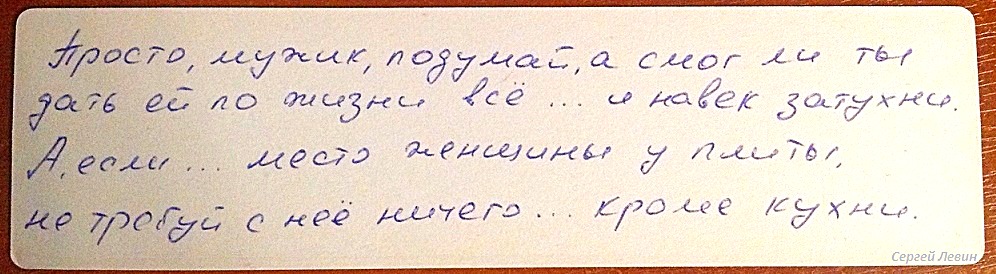 Просто, мужик, подумай, а смог ли ты
дать ей по жизни всё ... и навек затухни.
А, если ... место женщины у плиты,
не требуй с неё ничего ... кроме кухни.
Сергей Левин